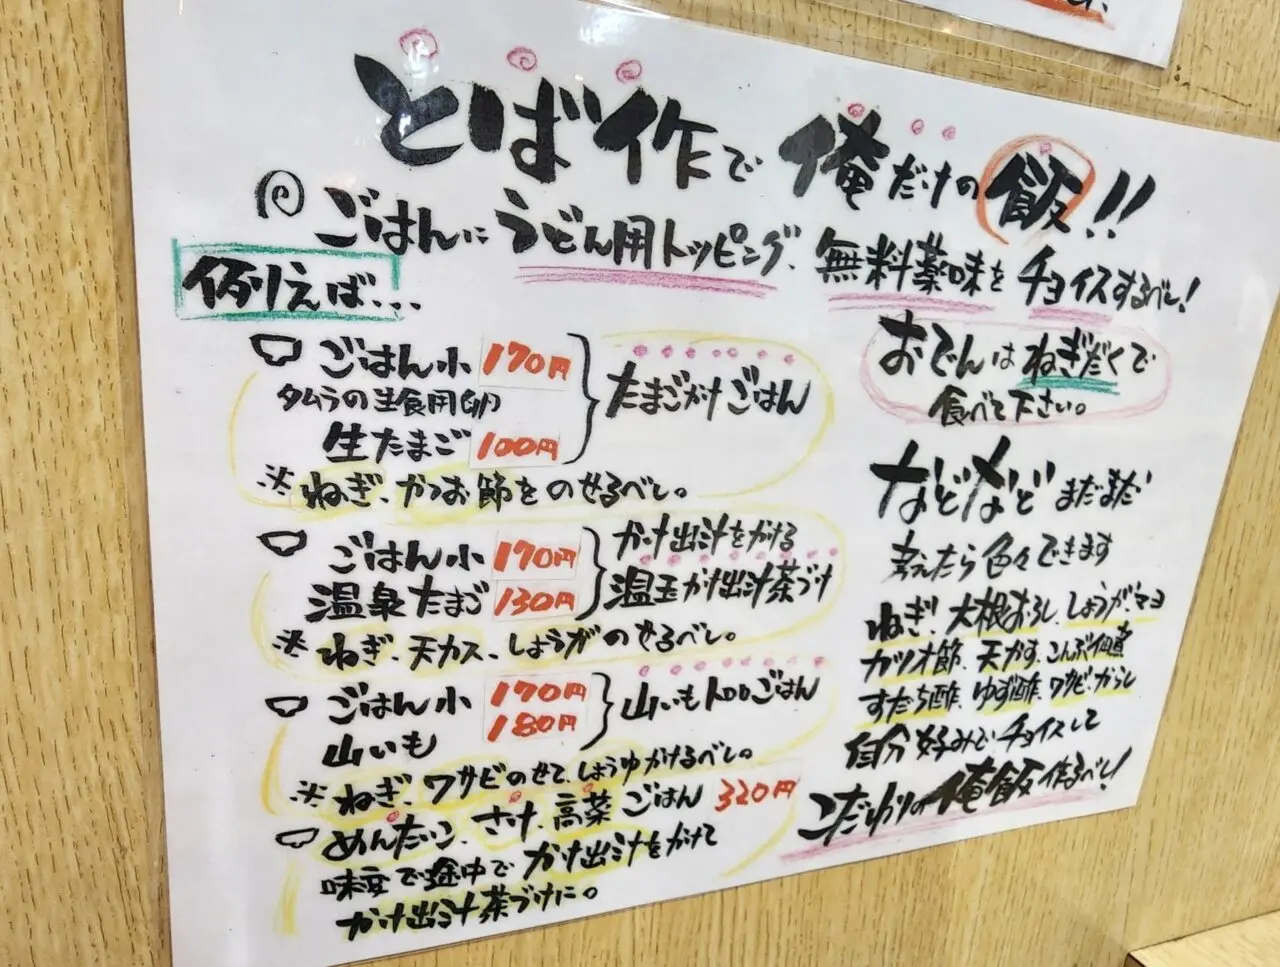 とば作で俺だけの飯!!
ごはんにうどん用トッピング、無料薬味をチョイスするべし!
例えば...
ごはん小 170円
タムラの生食用卵
生たまご 100円
たまごかけごはん
※ねぎ、かつお節をのせるべし。
ごはん小 170円
温泉たまご 130円
かけ出汁をかける
温玉かけ出汁茶づけ
※ねぎ、天カス、しょうがのせるべし。
ごはん小 170円
山いも 180円
山いもトロロごはん
※ねぎ、ワサビのせて、しょうゆかけるべし。
めんたいこ、さけ、高菜ごはん 320円
味変で途中でかけ出汁をかけて
かけ出汁茶づけに。
おでんはねぎだくで
食べて下さい。
などなどまだまだ
考えたら色々できます
ねぎ、大根おろし、しょうが、マヨ
カツオ節、天かす、こんぶ佃煮
すだち酢、ゆず酢、ワサビ、からし
自分好みでチョイスして
こだわりの俺飯作るべし!